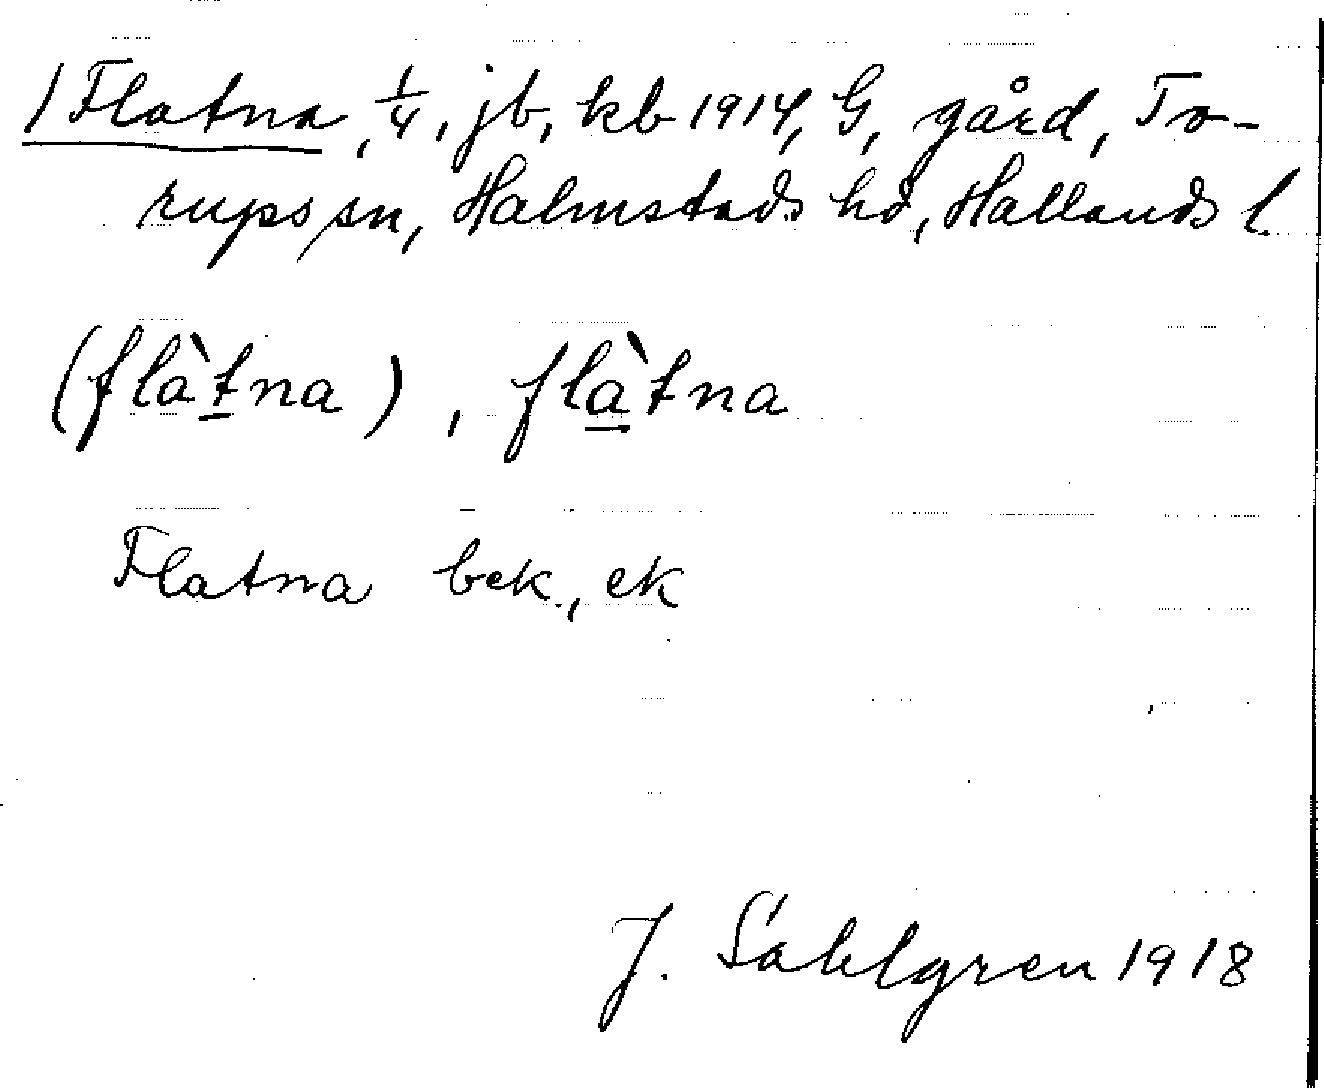 1 Flatna, 1/4, jb, kb 1914, G, gård, To-
rups sn, Halmstads hd, Hallands l.
(flàt̲na), flà̲tna
Flatna bek., ek
J. Sahlgren 1918